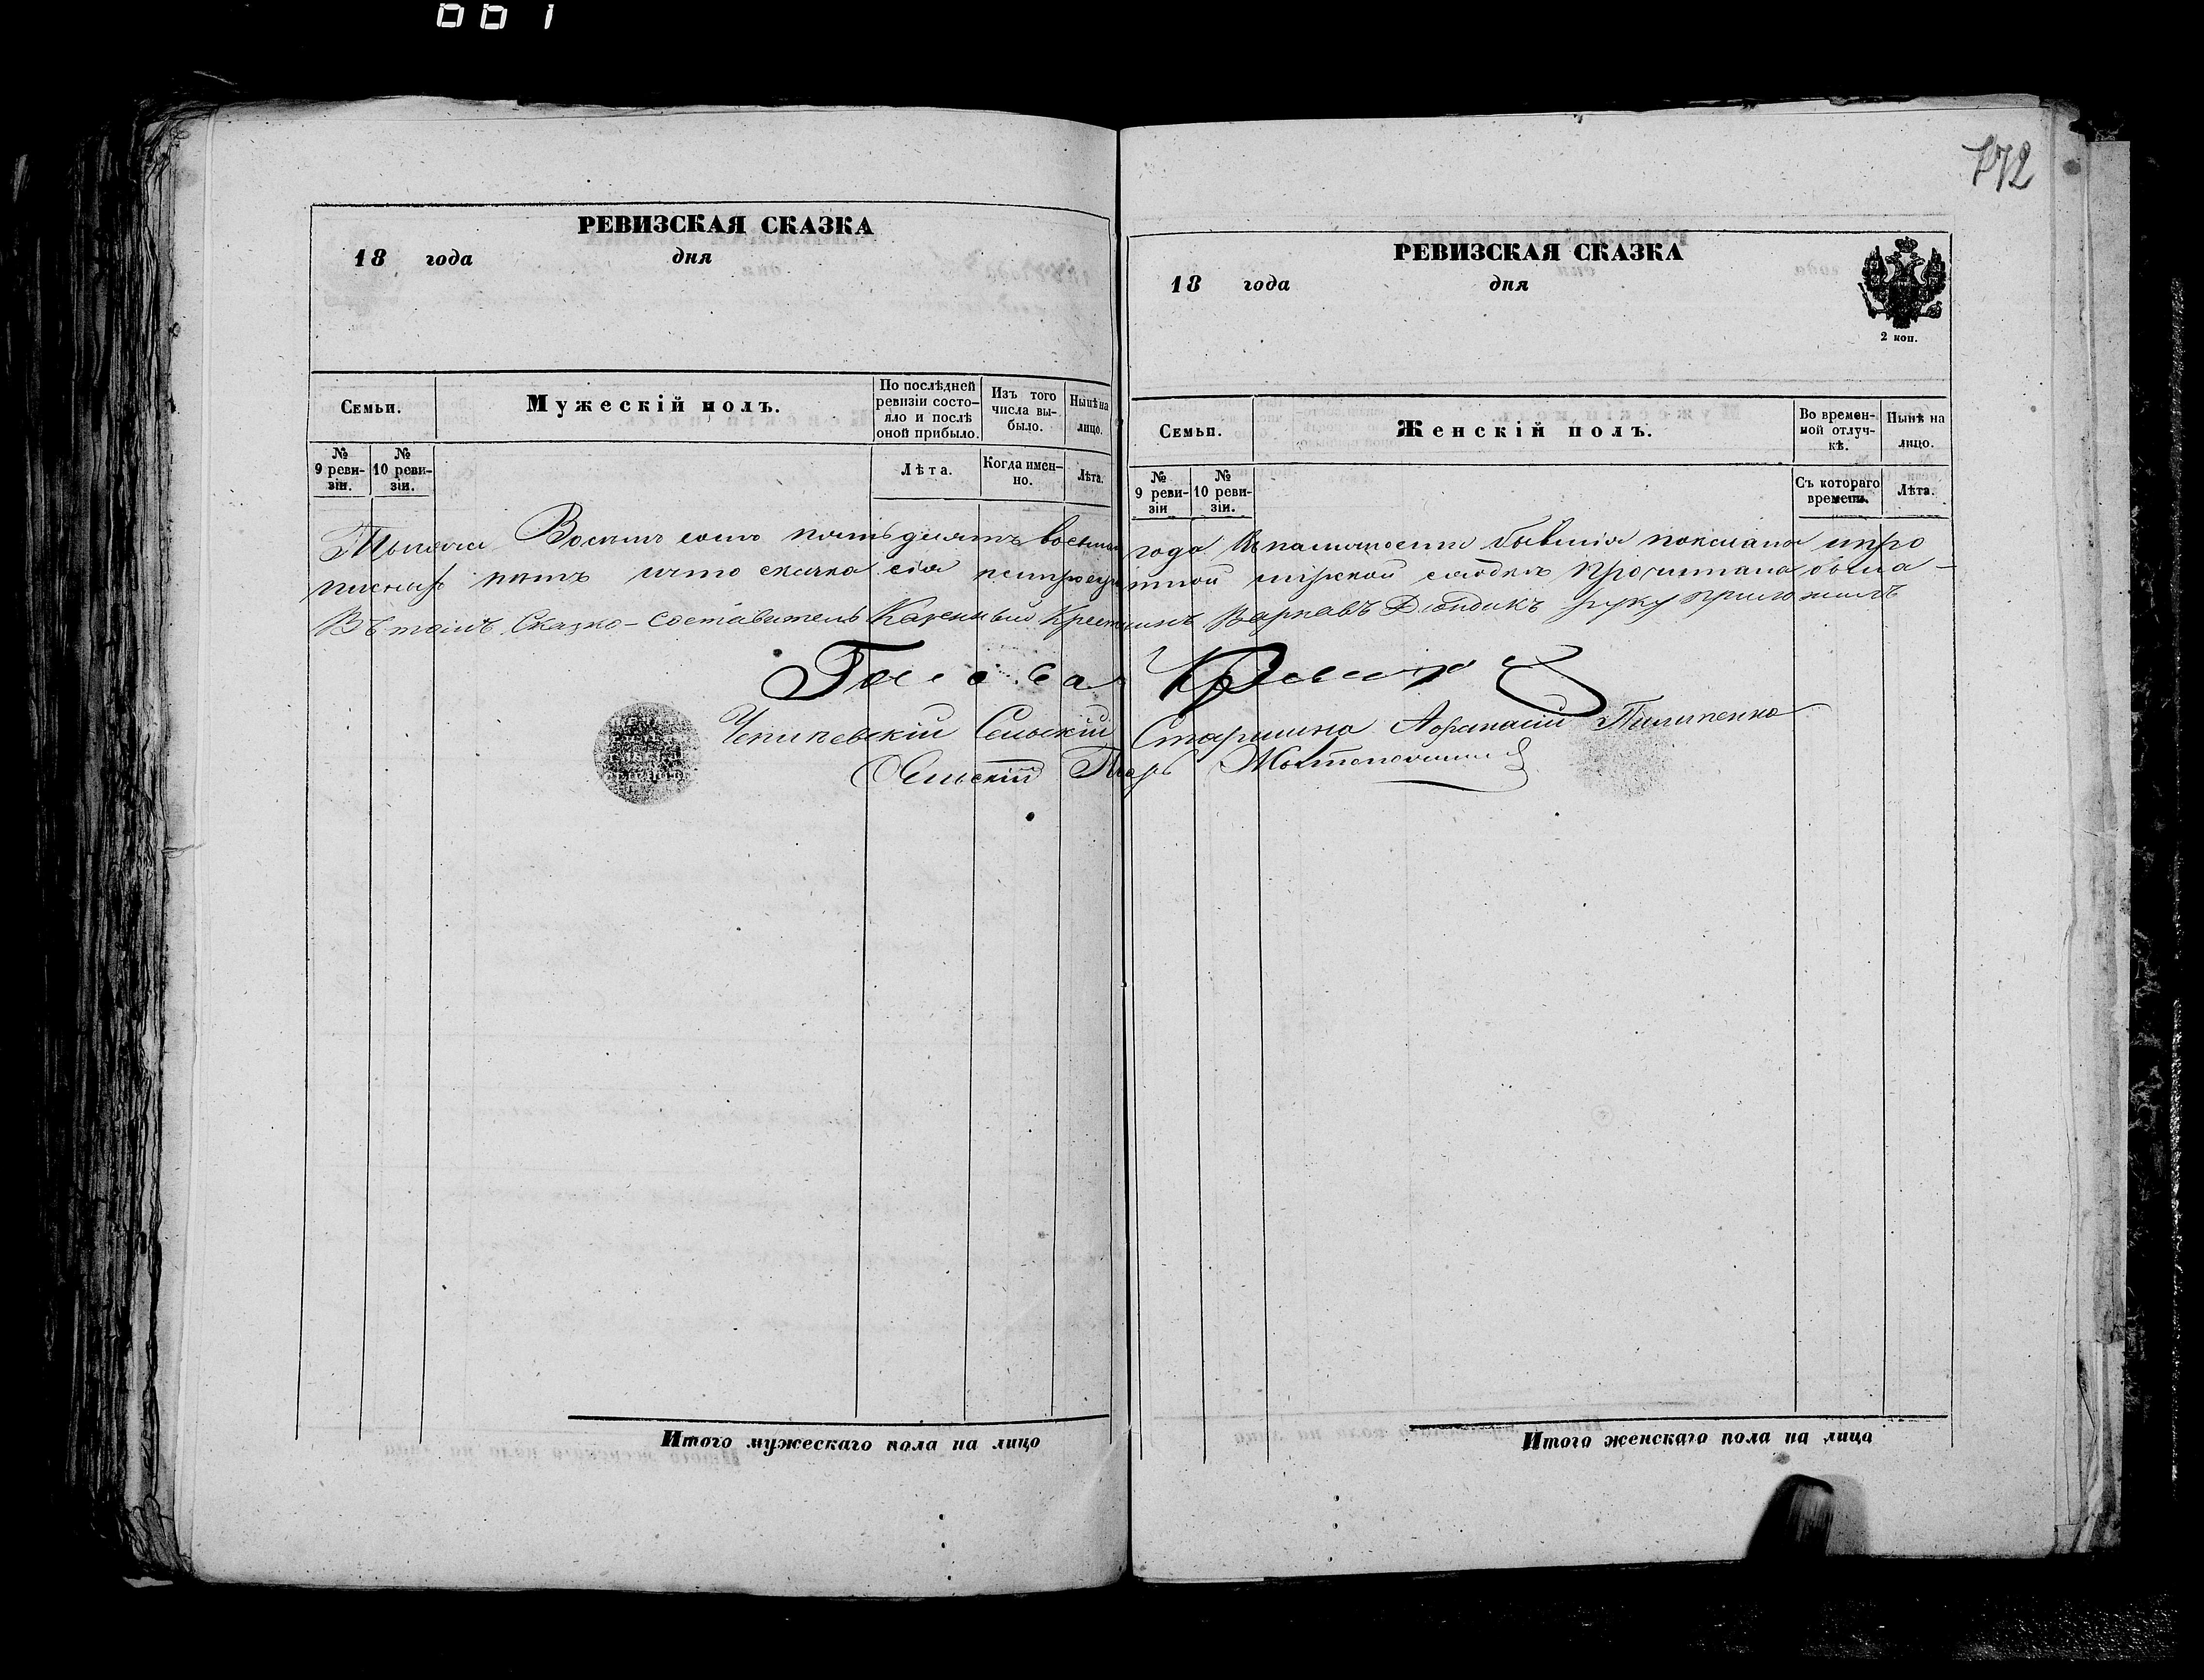 172
РЕВИЗСКАЯ СКАЗКА
18 года дня
Семьи.
Мужескій полъ.
По послѣдней ревизіи состояло и послѣ оной прибыло.
Изъ того числа выбыло.
Нынѣ на лицо.
№ 9 ревизіи.
№ 10 ревизіи.
Лѣта.
Когда именно.
Лѣта.
РЕВИЗСКАЯ СКАЗКА
18 года дня
2 коп.
Семьи.
Женскій полъ.
Во временной отлучкѣ.
Нынѣ на лицо.
№ 9 ревизіи
№ 10 ревизіи.
Съ котораго времени.
Лѣта.
Тысяча Восемь сотъ пятьдесятъ восьмаго года
нѣтъ и что сказка сія мірской сходкѣ прочитана была
Въ томъ Сказко-составитель Казенный Крестьянинъ руку приложилъ
Голова
Сельскій Старшина Афанасій Пилипенко
Сельскій
Итого мужескаго пола на лицо
Итого женскаго пола на лицо